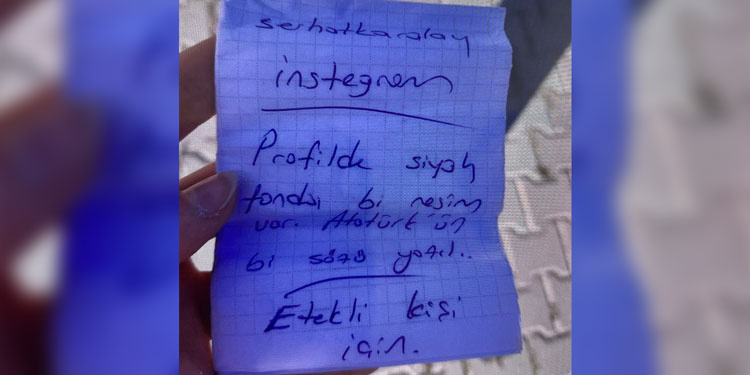 serhatkaralay
instegram
Profilde siyah
fondlı bi resim
var. Atatürk'ün
bi sözü yazıl..
Etekli kişi
için.